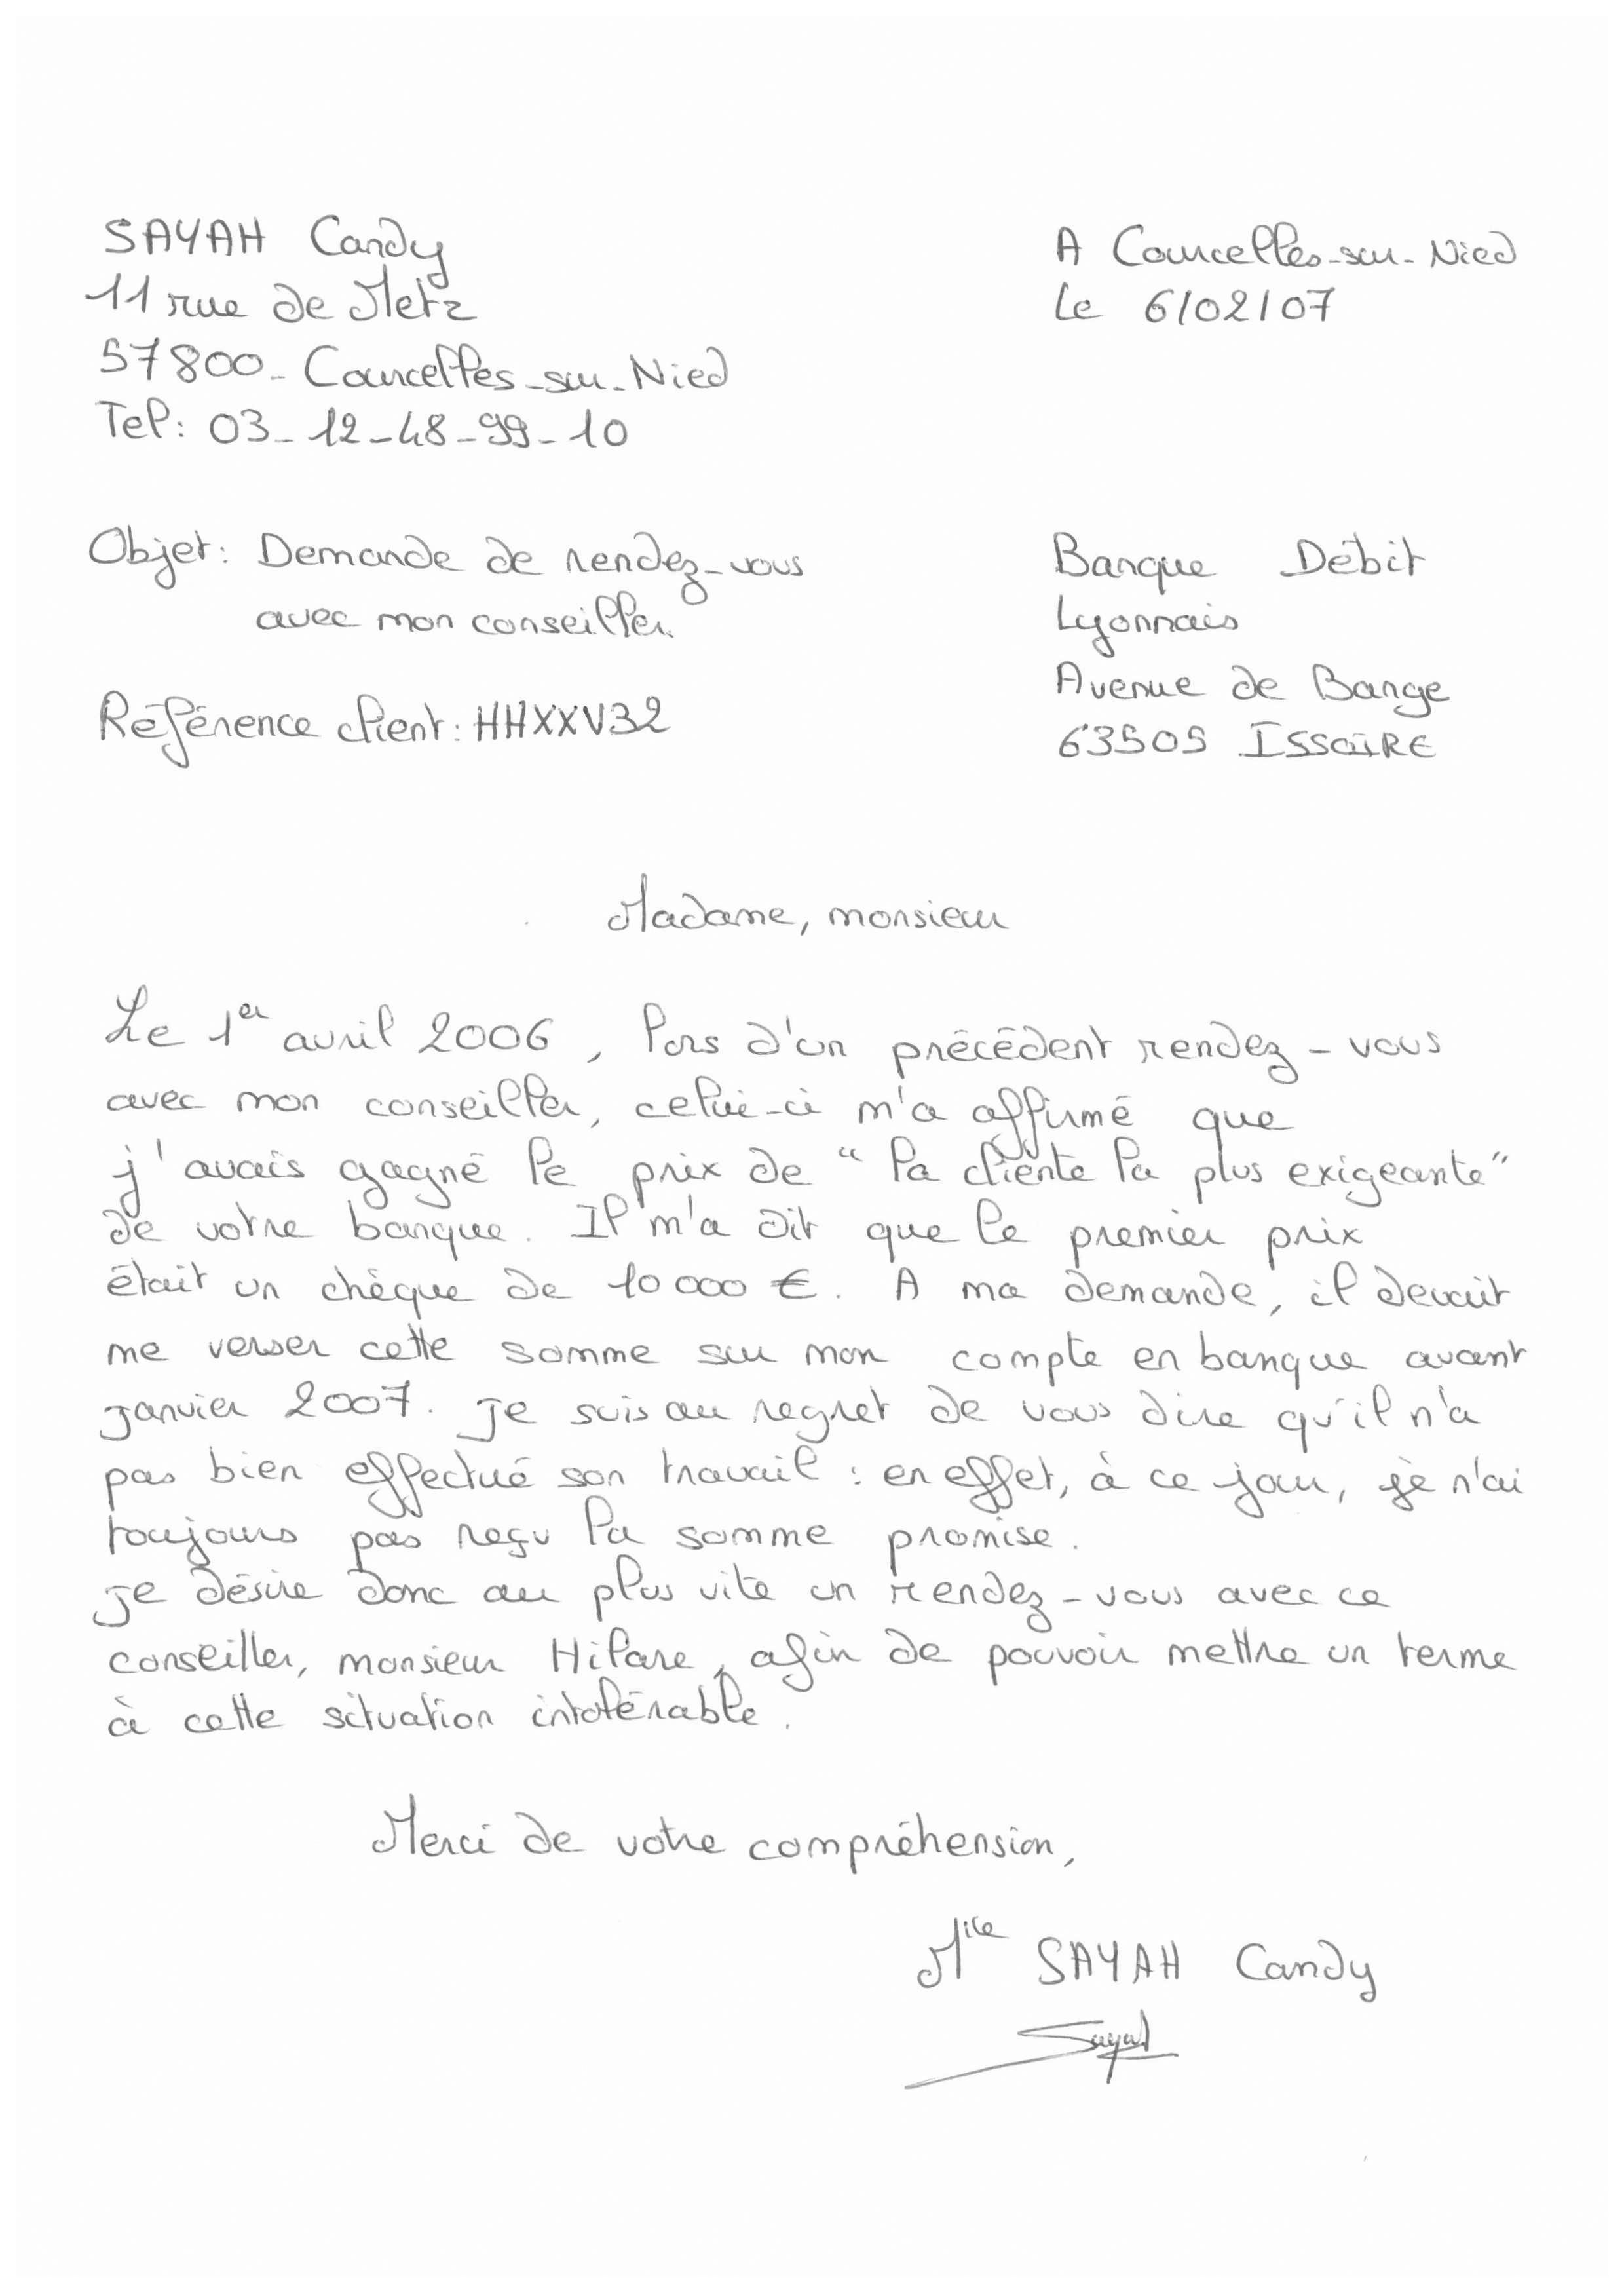 SAYAH Candy
11 rue de Metz
57800 - Courcelles-sur-Nied
Tel: 03-12-48-99-10
A Courcelles-sur-Nied
Le 6/02/07
Objet: Demande de rendez-vous
avec mon conseiller.
Référence client: HHXXV32
Banque Débit
Lyonnais
Avenue de Bange
63505 ISSOIRE
Madame, monsieur
Le 1er avril 2006, lors d'un précédent rendez-vous
avec mon conseiller, celui-ci m'a affirmé que
j'avais gagné le prix de "la cliente la plus exigeante"
de votre banque. Il m'a dit que le premier prix
était un chèque de 10 000 €. A ma demande, il devait
me verser cette somme sur mon compte en banque avant
janvier 2007. Je suis au regret de vous dire qu'il n'a
pas bien effectué son travail : en effet, à ce jour, je n'ai
toujours pas reçu la somme promise.
Je désire donc au plus vite un rendez-vous avec ce
conseiller, monsieur Hilare, afin de pouvoir mettre un terme
à cette situation intolérable.
Merci de votre compréhension,
Mlle SAYAH Candy
Sayah